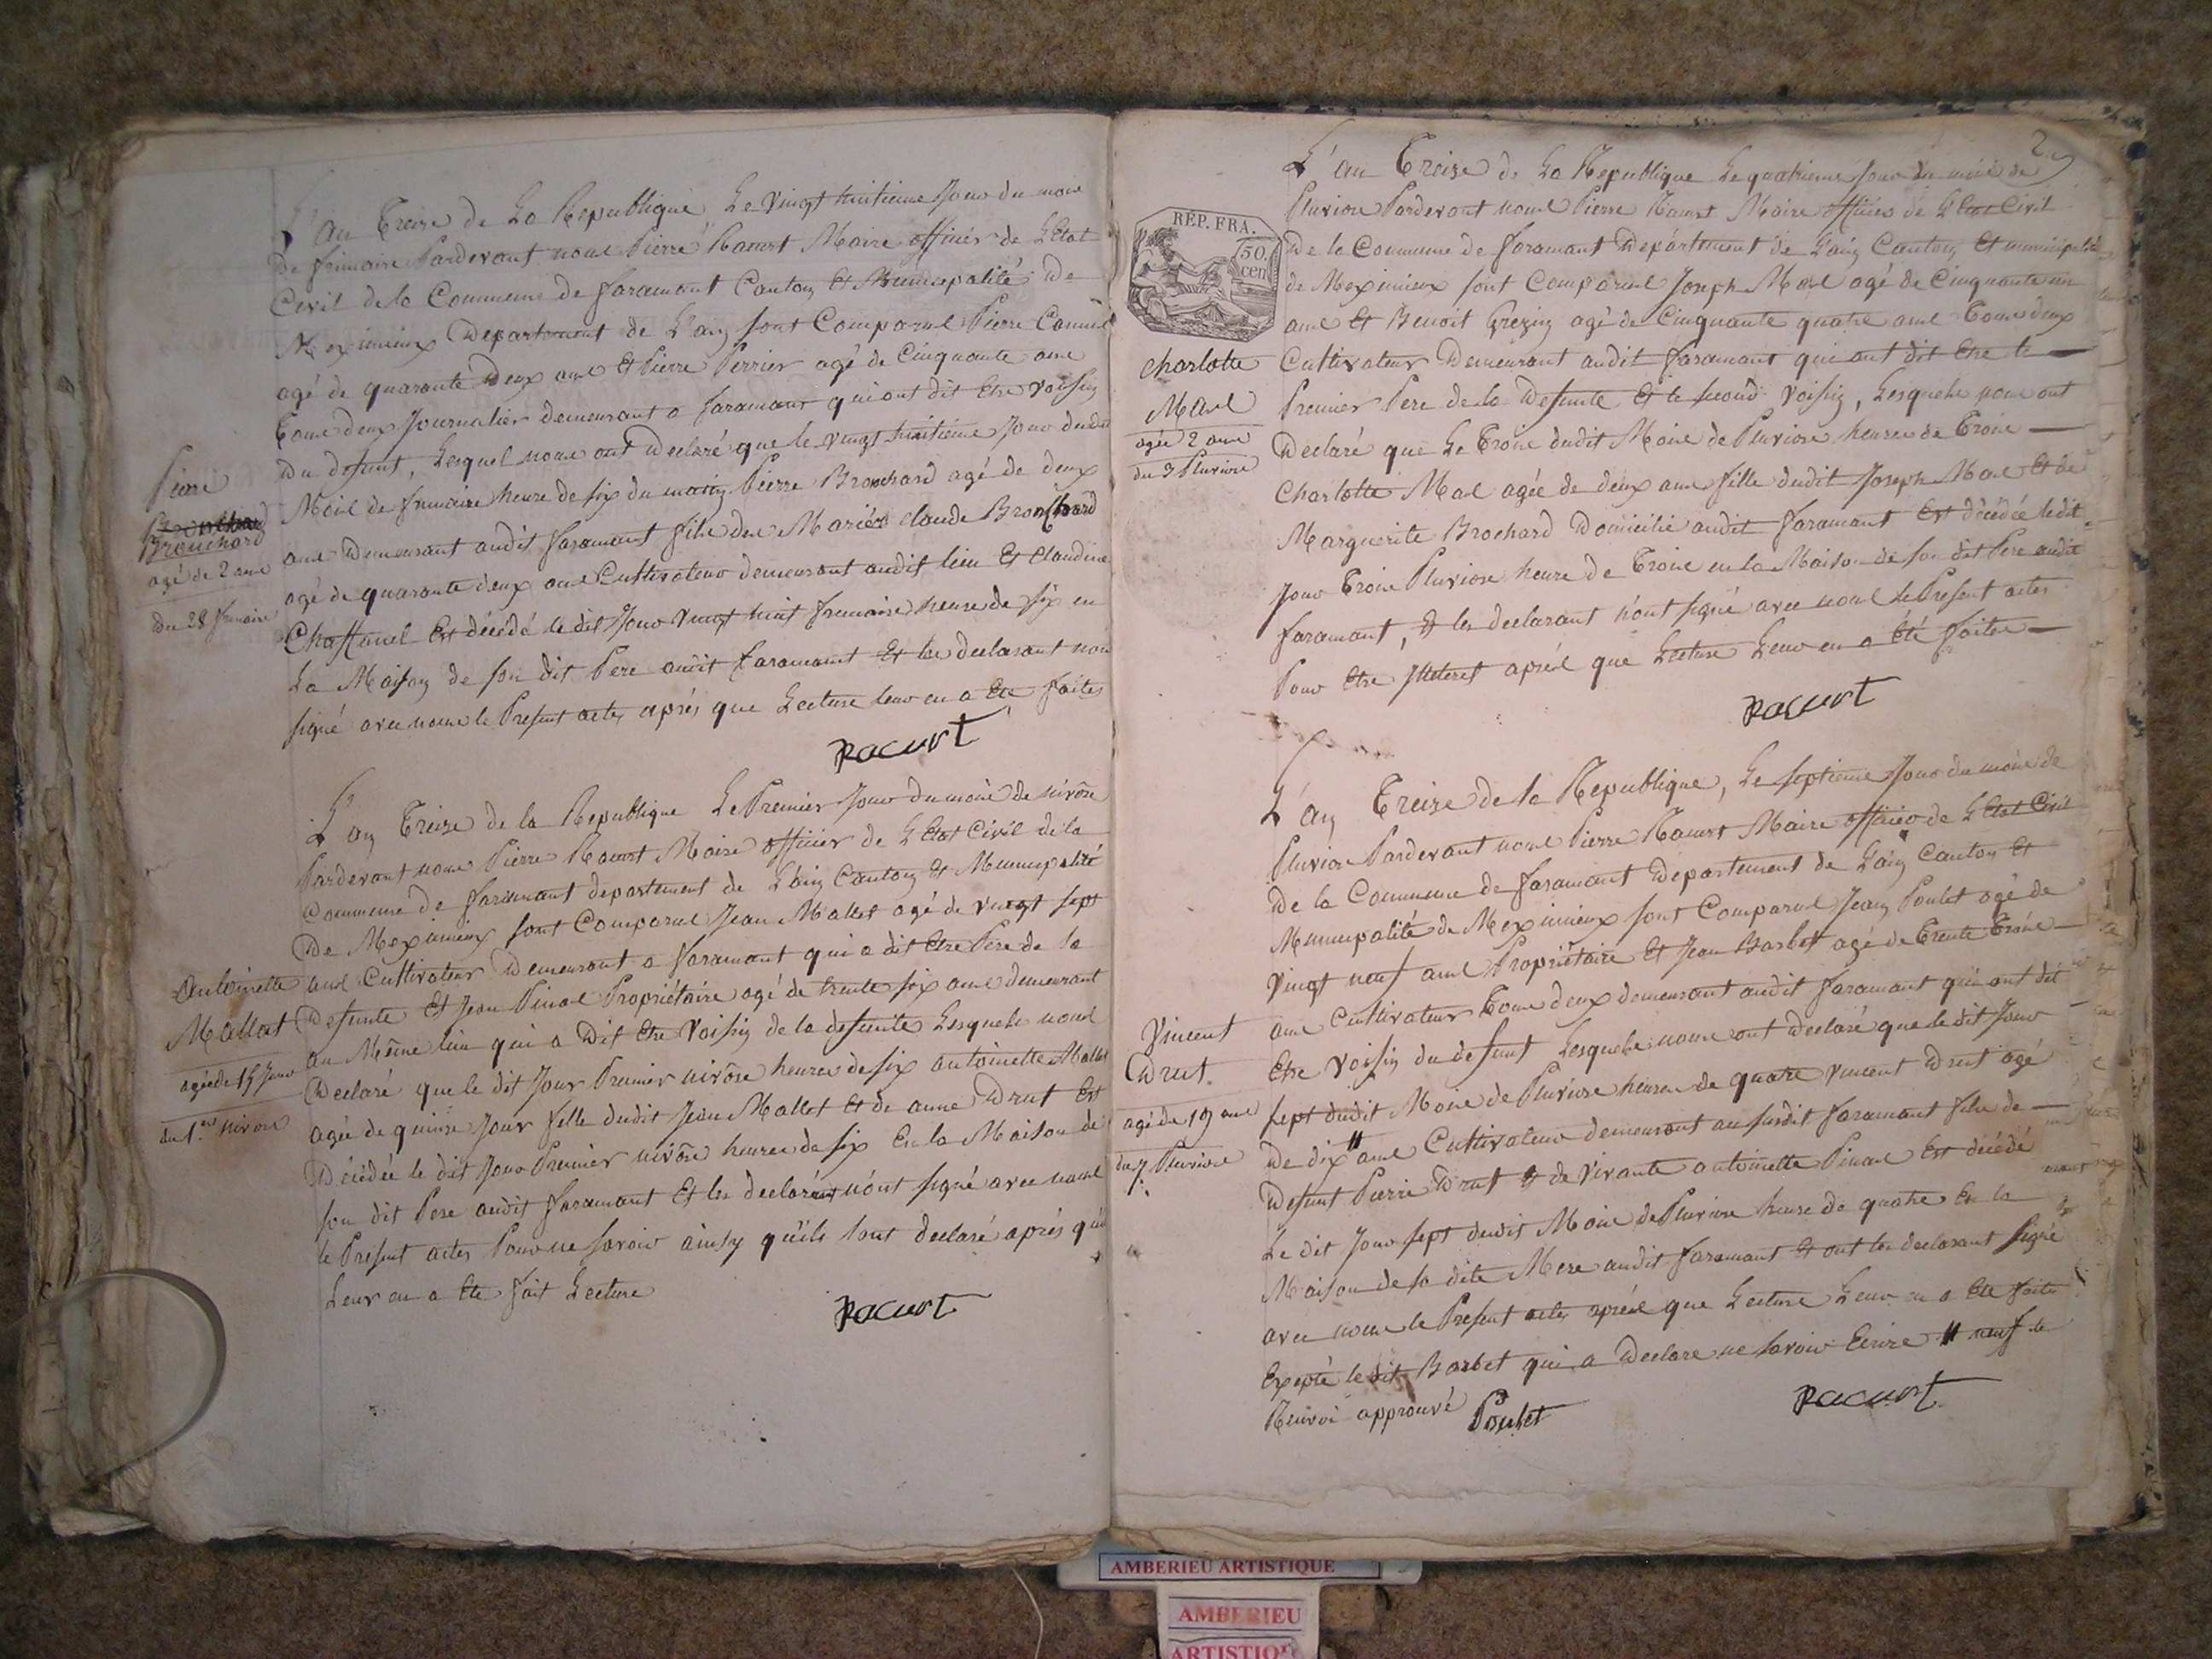 L'an Treize de La Republique Le Vingt huitieme Jour du mois
de frimaire Pardevant nous Pierre Racurt Maire officier de L'Etat
Civil de la Commune de faramant Canton Et Municipalité De
Meximieux Departement de L'ain sont Comparus Pierre
agé de quarante Deux ans Et Pierre Perrier agé de Cinquante ans
Tous deux Journalier demeurant a faramant qui ont dit Etre Voisin
Du defunt, Lesquel nous ont Declaré que le vingt huitieme Jour dudit
Mois de frimaire heure de six du matin Pierre Bronchard agé de deux
ans Demeurant audit faramant fils des Mariés Claude Bronchard
agé de quarante deux ans Cultivateur demeurant audit lieu Et Claudine
Est décédé le dit Jour Vingt huit frimaire heure de six en
La Maison de son dit Pere audit faramant Et les declarant non
signé avec nous le Present actes aprés que Lecture leur en a Eté faites
Racurt
Pierre
Bronchard
Bronchard
agé de 2 ans
du 28 frimaire
L'an Treize de la Republique Le Premier Jour du mois de nivôse
Pardevant nous Pierre Racurt Maire officier de L'Etat Civil de la
Commune de faramant departement de L'ain Canton Et Municipalité
De Meximieux sont Comparus Jean Mallet agé de vingt sept
ans Cultivateur Demeurant a faramant qui a dit Etre Pere de la
Defunte Et Jean Pinal Propriétaire agé de trente six ans demeurant
au Même lieu qui a Dit Etre Voisin de la defunte Lesquels nous
Declaré que le dit Jour Premier nivôse heures de six antoinette Mallet
agée de quinze Jour fille dudit Jean Mallet Et de anne Drut Est
Décédée le dit Jour Premier nivôse heures de six En la Maison de
son dit Pere audit faramant Et les declarant n'ont signé avec nous
le Present actes Pour ne savoir ainsy qu'ils l'ont declaré aprés que
Leur en a Eté fait Lecture
Racurt
Antoinette
Mallet
agée de 15 Jour
du 1.er nivose
2
RÉP. FRA.
50.
cen
L'an Treize de La Republique Le quatrieme Jour du mois de
Pluviose Pardevant nous Pierre Racurt Maire officier de L'Etat Civil
De la Commune de faramant Departement de L'ain Canton Et municipalité
de Meximieux sont Comparus Joseph Mas agé de Cinquante un
ans Et Benoit Grezin agé de Cinquante quatre ans Tous deux
Cultivateur Demeurant audit faramant qui ont dit Etre le
Premier Pere de la Defunte Et le second Voisin, Lesquels nous ont
Declaré que Le Trois dudit Mois de Pluviose heures de Trois
Charlotte Mas agée de deux ans fille dudit Joseph Mas Et de
Marguerite Brochard Domicilié audit faramant Est décédée ledit
Jour Trois Pluviose heure de Trois en la Maison de son dit Pere audit
faramant, Et les declarant n'ont signé avec nous le Present actes
Pour Etre Illeteret aprés que Lecture Leur en a Eté faites
Racurt
Charlotte
Mas
agée 2 ans
du 3 Pluviose
L'an Treize de la Republique, Le septieme Jour du mois de
Pluviose Pardevant nous Pierre Racurt Maire officier de L'Etat Civil
De la Commune de faramant Departement de L'ain Canton Et
Municipalité de Meximieux sont Comparus Jean Poulet agé de
vingt neuf ans Propriétaire Et Jean Barbet agé de Trente Trois
ans Cultivateur Tous deux demeurant audit faramant qui ont dit
Etre Voisin du defunt Lesquels nous ont Declaré que le dit Jour
sept dudit Mois de Pluviose heures de quatre Vincent Drut agé
De dix ʺ ans Cultivateur demeurant au susdit faramant fils de
Defunt Pierre Drut & de Vivante antoinette Pinal Est décédé
Le dit Jour sept dudit Mois de Pluviose heure de quatre En la
Maison de sa dite Mere audit faramant Et ont les declarant signé
avec nous le Present actes aprés que Lecture Leur en a Eté faites
Expté le dit Barbet qui a Declare ne savoir Ecrire ʺ neuf le
Renvoi approuvé
Poulet
Racurt
Vincent
Drut
agé de 19 ans
du 7 Pluviose
AMBERIEU ARTISTIQUE
AMBERIEU
ARTISTIQUE